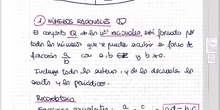 ① NÚMEROS RACIONALES (Q)
El conjunto Q de los nos racionales está formado por
todos los números que se pueden escribir en forma de
fracción a/b con a, b ∈ Z y b≠0.
Incluye todos los enteros, y de los decimales los
exactos y los periódicos.
Recordatorio
a/b = c/d a·d = b·c